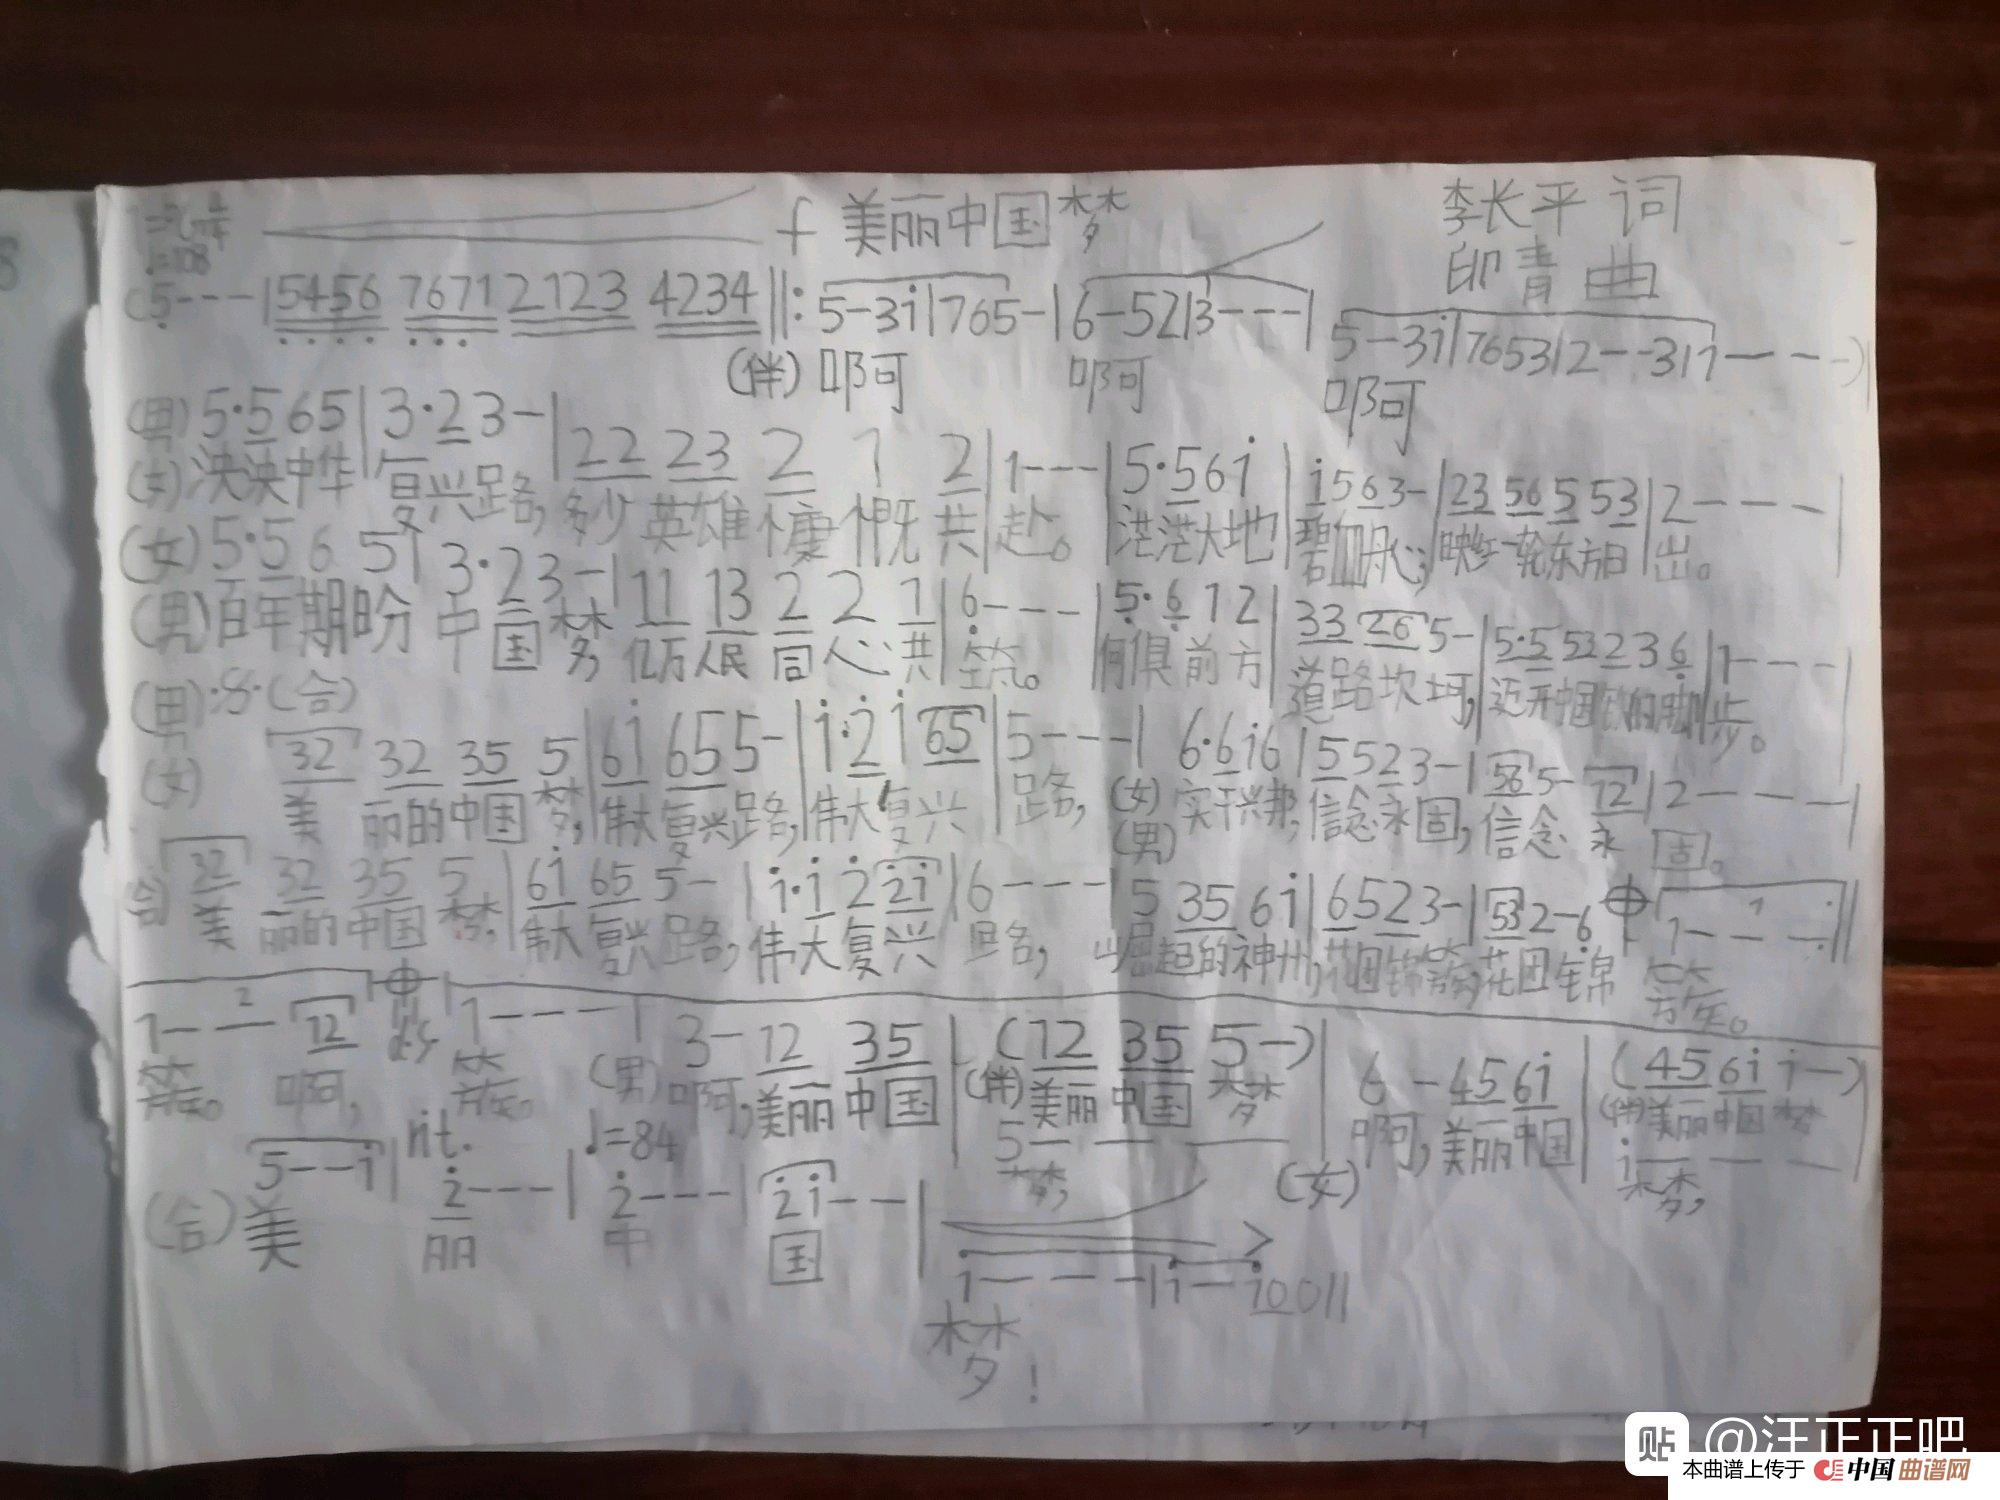 f 美丽中国梦 李长平 词
=108 印青 曲
(5---|5456 7671 2123 4234‖:5-3i|765-|6-52|3---|5-3i|7653|2--3|1---)|
(伴)啊 啊 啊
(男)5·5 65|3·2 3-|22 23 2 1 2|1---|5·5 6i|i5 63-|23 56 5 53|2---|
(女)泱泱中华 复兴路,多少英雄慷慨共赴。茫茫大地碧血丹心,映红一轮东方日出。
(女)5·5 6 5|3·2 3-|11 13 2 2 1|6---|5·6 12|33 26 5-|5·5 53 23 6|1---|
(男)百年期盼 中国梦,亿万人民同心共筑。何惧前方道路坎坷,迈开中国的脚步。
(男)·S·(合)
32 32 35 5|6i 65 5-|i·2 i 65|5---|6·6 i6|5 52 3-|56 5-12|2---|
(女) 美丽的中国梦,伟大复兴路,伟大复兴路,(女)实干兴邦,信念永固,信念永固。
(男)
32 32 35 5|6i 65 5-|i·i 2 2i|6---|5 35 6i|6 52 3-|53 2-6 1--- :‖
合 美丽的中国梦,伟大复兴路,伟大复兴路,崛起的神州,花团锦簇,花团锦簇。
1-- 12 1---|3-12 35|(12 35 5-)|6-45 6i|(45 6i i-)|
簇。啊, 簇。(男)啊,美丽中国(伴)美丽中国梦 啊,美丽中国(伴)美丽中国梦
rit. ♩=84 5--- (女) i---
梦, 梦,
5--i|2---|2---|2i--|
(合)美丽中国
>
i---|i-i0 0‖
梦!
贴 @汪正正吧
本曲谱上传于 中国曲谱网